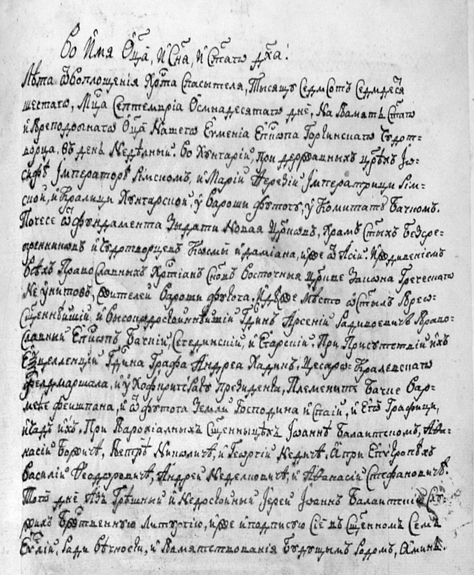 Во Имя Оца, и Сна, и Стаго Дха!
Лѣта Ѿ Воплощенія Хрта Спасытеля, Тысящъ Седмсотъ Седмдеся
шестаго, Мца Септемврїа Осмнадесятаго дне, На Памятъ Стаго
и Преподобнаго Оца Нашего Евменїа Епскопа Гортинскаго Чудот-
ворца, въ день Недѣлный. Во Хунгарїи, при державныхъ црѣхъ Іо-
сифѣ Імператорѣ Римскомъ, и Марїи Терезїи Імператрици Рим-
ской, и Кралици Хунгарской, у Вароши Футогъ, у Комитатѣ Бачкомъ.
Почесе Ѿ фундамента Зыдати Новая Црковъ, Храмъ Стыхъ Безсре-
бренниковъ и Чудотворцевъ Космы и Дамїана, иже Ѿ Асїи
всѣхъ Православныхъ Хртїанъ Сновъ Восточныя Цркве Закона Греческаго
Не Унитовъ, жителей Вароши Футога, и Мѣсто Ѿстылъ Прео-
сщеннѣйшїй и Высокодостойнѣйшїй Гдинъ Арсенїй Радивоевичъ Право-
славный Епскопъ Бачкїй, Сегединскїй и Егарскїй При Присутствїи ихъ
Ецелленцїи Гдина Графа Андреа Хадикъ, Цесарво-Кралевскаго
Фелдмаршала, и у Хофкригсратъ Президента, Племените Бачке Вар-
међе Феишпана, и Ѿ Футога Земли Господина и Спаїи, и Его Графици,
и Чадъ ихъ, При Парохіалныхъ Сщенницѣхъ Іоаннѣ Балаитскомъ, Аѳа-
насїи Боричѣ, Петрѣ Николичѣ, и Георгїи Недичѣ, А при Епитропѣхъ
Василїи Ѳеодоровичѣ, Андреи Неделковичѣ, и Аѳанасїи Стефановичѣ.
Того дне Азъ Грѣшный и Недостойный Іереи Іоаннъ Балаитскїй
Бжтвенную Литургію, иже и подписую Сїе въ Сщенномъ
Ради Вѣчности, и Памятствованїа Будущымъ Родомъ, Аминь.